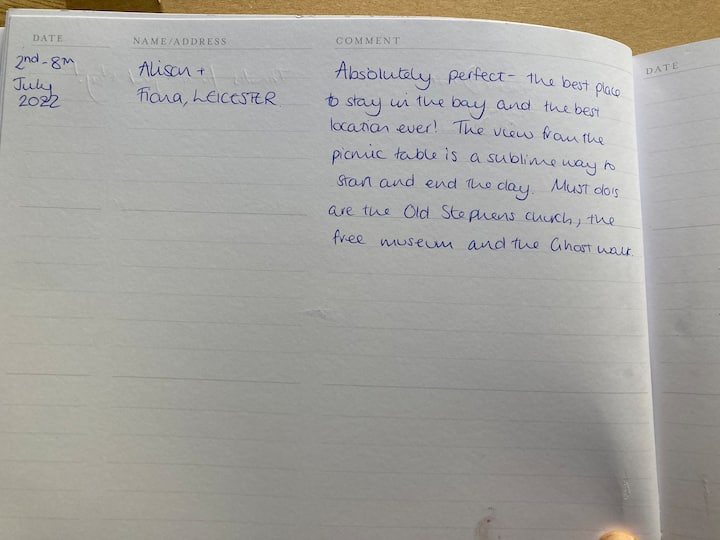 DATE NAME/ADDRESS COMMENT
DATE
2nd-8th
July
2022
Alison +
Fiona, LEICESTER.
Absolutely perfect - the best place
to stay in the bay and the best
location ever! The view from the
picnic table is a sublime way to
start and end the day. Must do's
are the Old Stephens church, the
free museum and the Ghost walk.